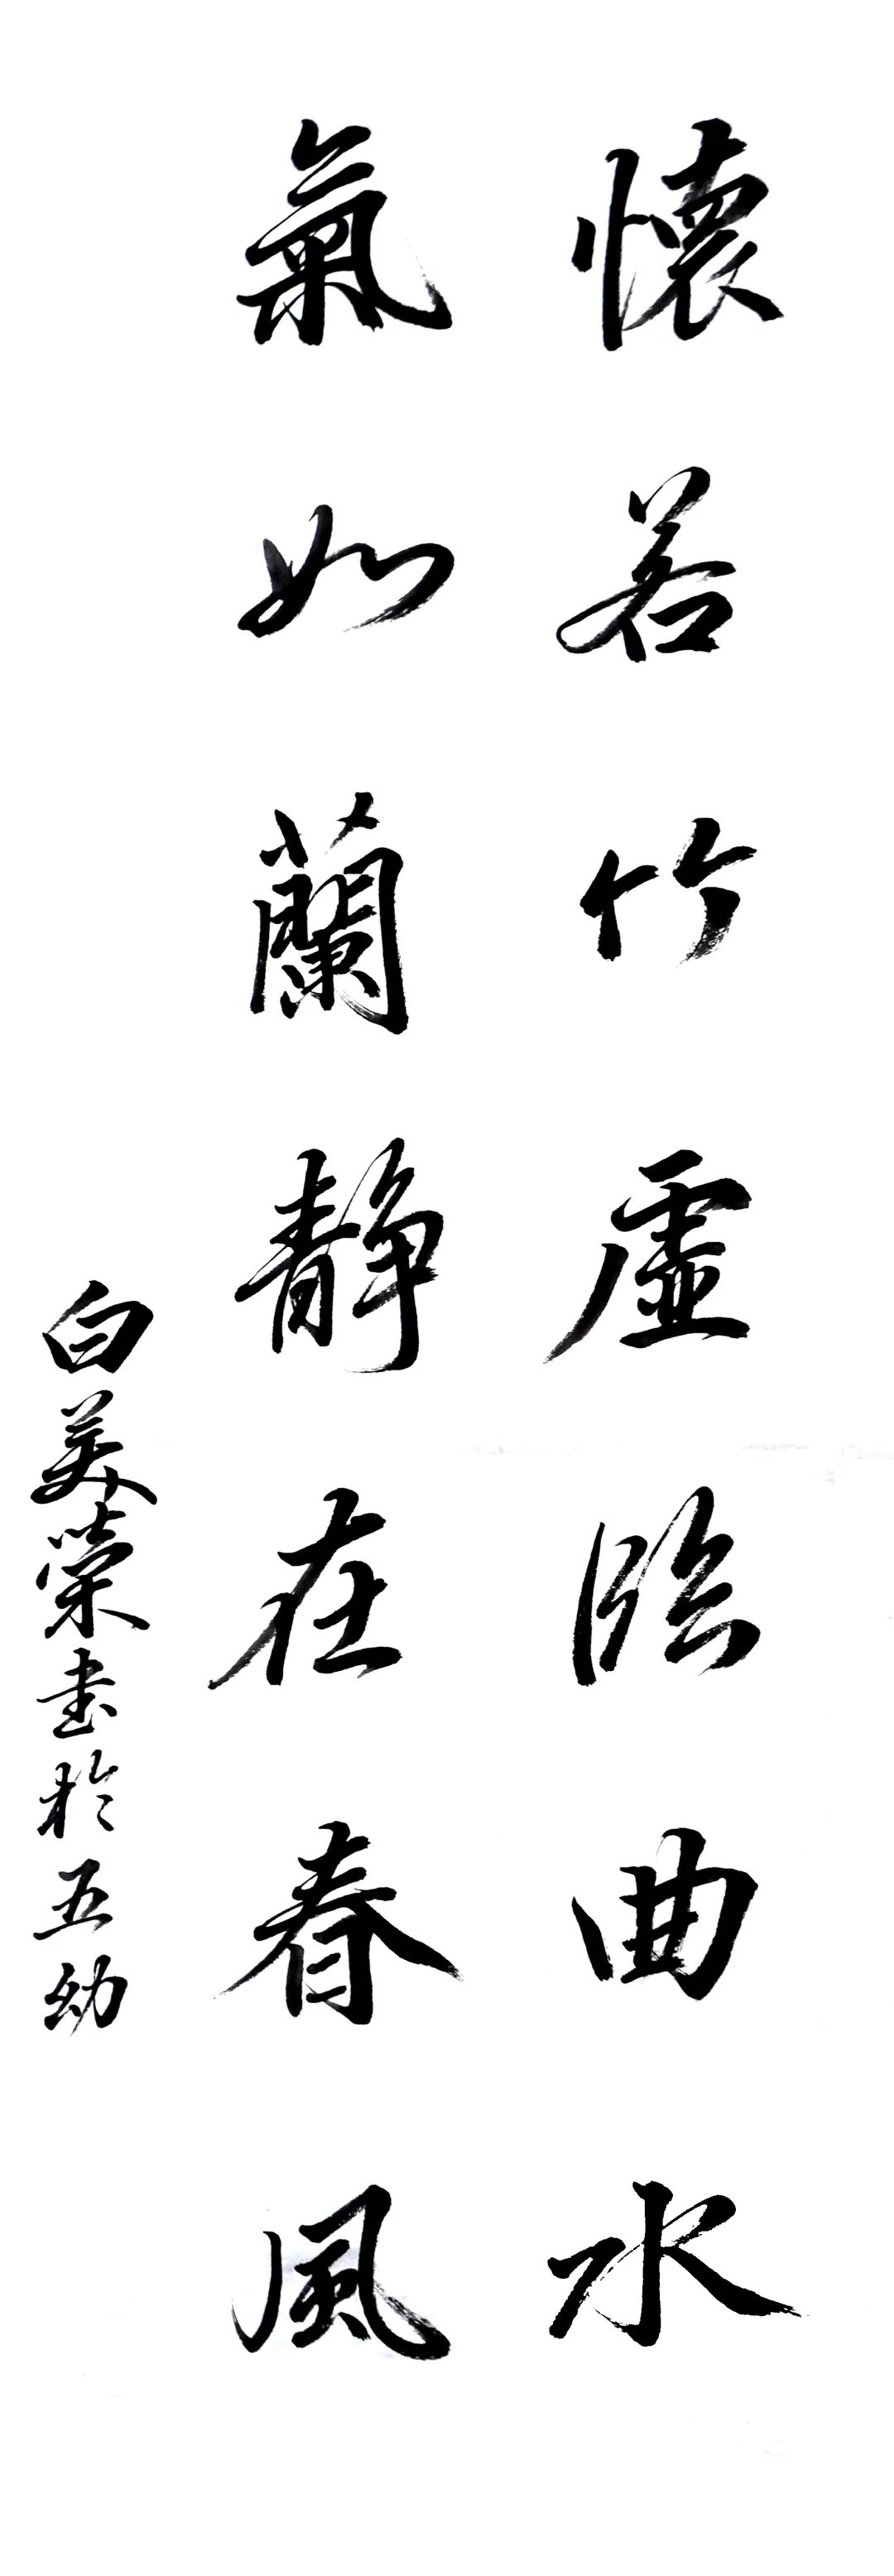 懷若竹虛臨曲水
氣如蘭静在春風
白美榮书於五幼